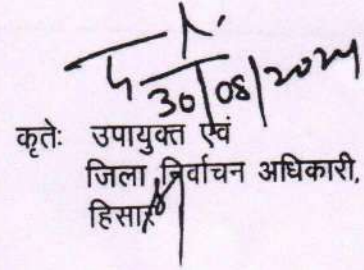 30/08/2024
कृतेः उपायुक्त एवं
जिला निर्वाचन अधिकारी,
हिसार